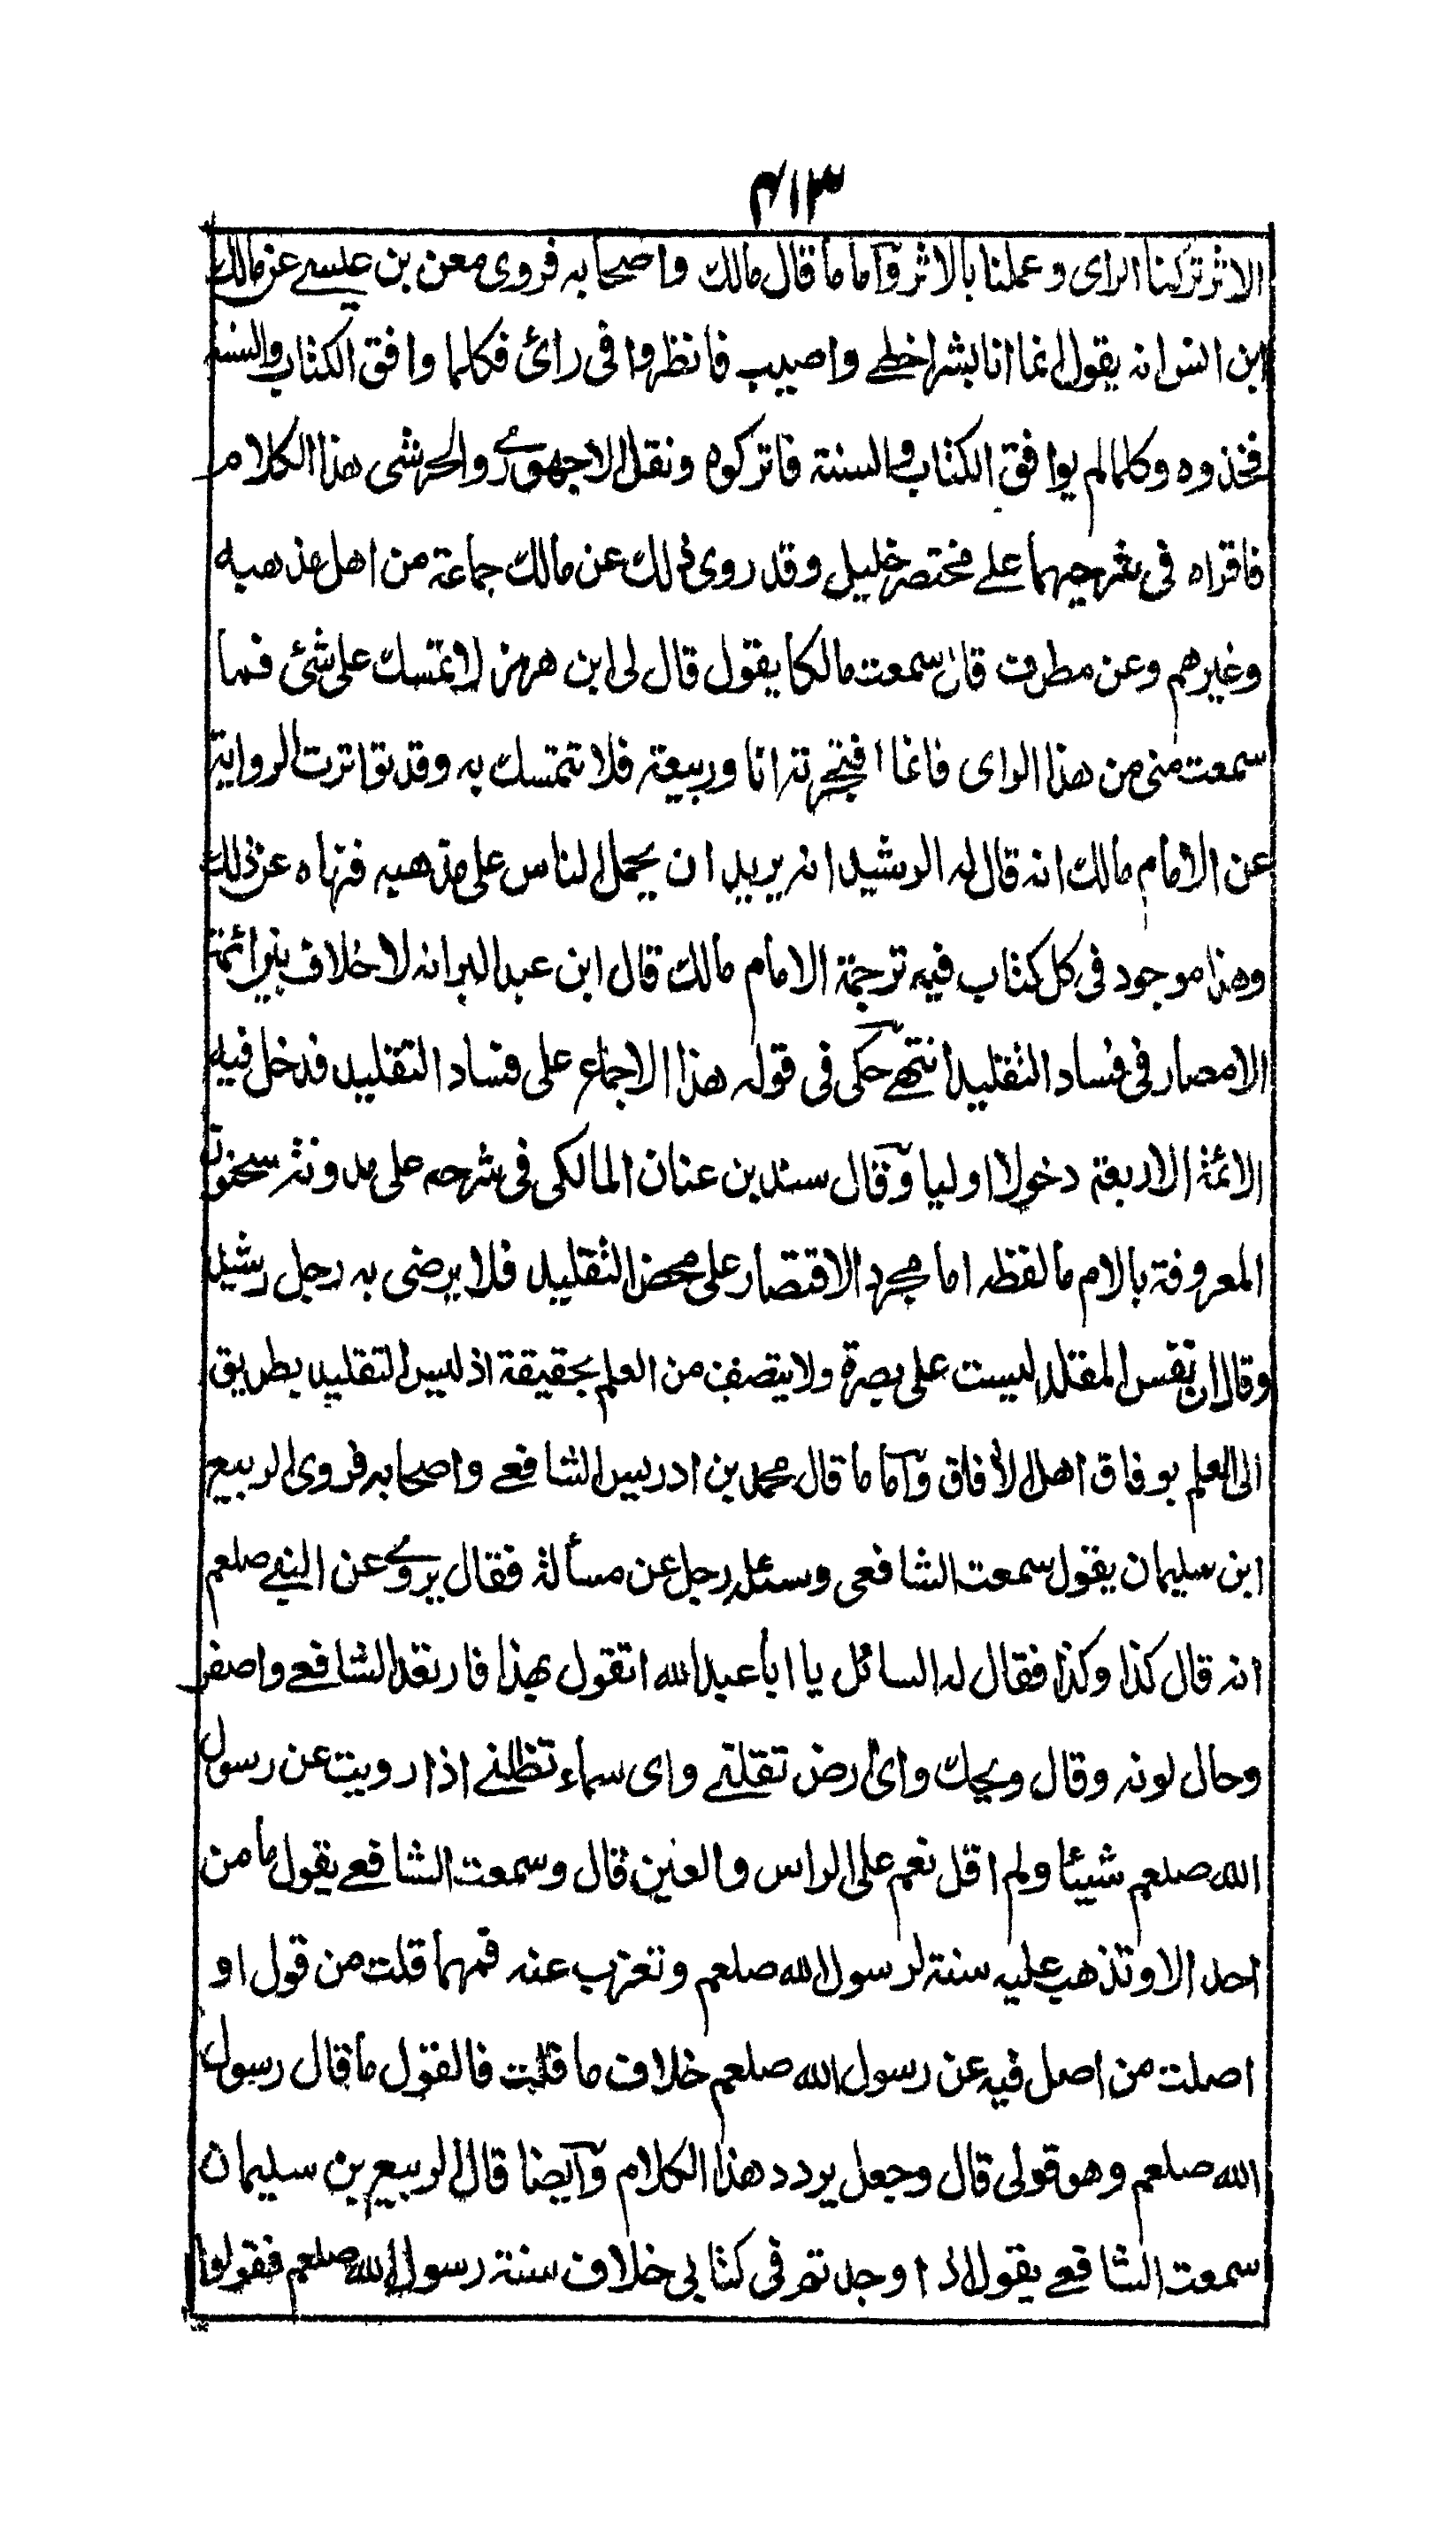 ۴۱۳
الاثر تركنا الراى وعملنا بالاثر وآما ما قال مالك واصحابه فروى معن بن عيسے عن مالك
ابن انس انه يقول انما انا بشر اخطے واصيب فانظروا فى رائ فكلما وافق الكتاب والسنة
فخذوه وكلما لم يوافق الكتاب والسنة فاتركوه ونقل الاجهورے والخرشى هذا الكلام
فاقراه فى شرحيهما علے مختصر خليل وقد روى ذلك عن مالك جماعة من اهل مذهبه
وغيرهم وعن مطرف قال سمعت مالكا يقول قال لى ابن هرمز لا تمسك على شئ فما
سمعت منى من هذا الراى فانما افتجرته انا وربيعة فلا تتمسك به وقد تواترت الرواية
عن الامام مالك انه قال له الرشيد انه يريد ان يحمل الناس على مذهبه فنهاه عن ذلك
وهذا موجود فى كل كتاب فيه ترجمة الامام مالك قال ابن عبد البر انه لا خلاف بين ائمة
الامصار فى فساد التقليد انتهے حكى فى قوله هذا الاجماع على فساد التقليد فدخل فيه
الائمة الاربعة دخولا اوليا وقال سند بن عنان المالكى فى شرحه على مدونة سحنون
المعروفة بالام ما لفظه اما مجرد الاقتصار على محض التقليد فلا يرضى به رجل رشيد
وقال ان نفس المقلد ليست على بصرة ولا يتصف من العلم بحقيقة اذ ليس التقليد بطريق
الى العلم بوفاق اهل الأفاق وآما ما قال محمد بن ادريس الشافعے واصحابه فروى الربيع
ابن سليمان يقول سمعت الشافعى وسئله رجل عن مسألة فقال يروے عن النبے صلعم
انه قال كذا وكذا فقال له السائل يا ابا عبد الله اتقول بهذا فارتعد الشافعے واصفر
وحال لونه وقال ويحك واى ارض تقلنے واى سماء تظلنے اذا رويت عن رسول
الله صلعم شيئا ولم اقل نعم على الراس والعين قال وسمعت الشافعے يقول ما من
احد الا وتذهب عليه سنة لرسول الله صلعم وتعزب عنه فمهما قلت من قول او
اصلت من اصل فيه عن رسول الله صلعم خلاف ما قلت فالقول ما قال رسول
الله صلعم وهو قولى قال وجعل يردد هذا الكلام وآيضا قال الربيع بن سليمان
سمعت الشافعے يقول اذا وجدتم فى كتابى خلاف سنة رسول الله صلعم فقولوا